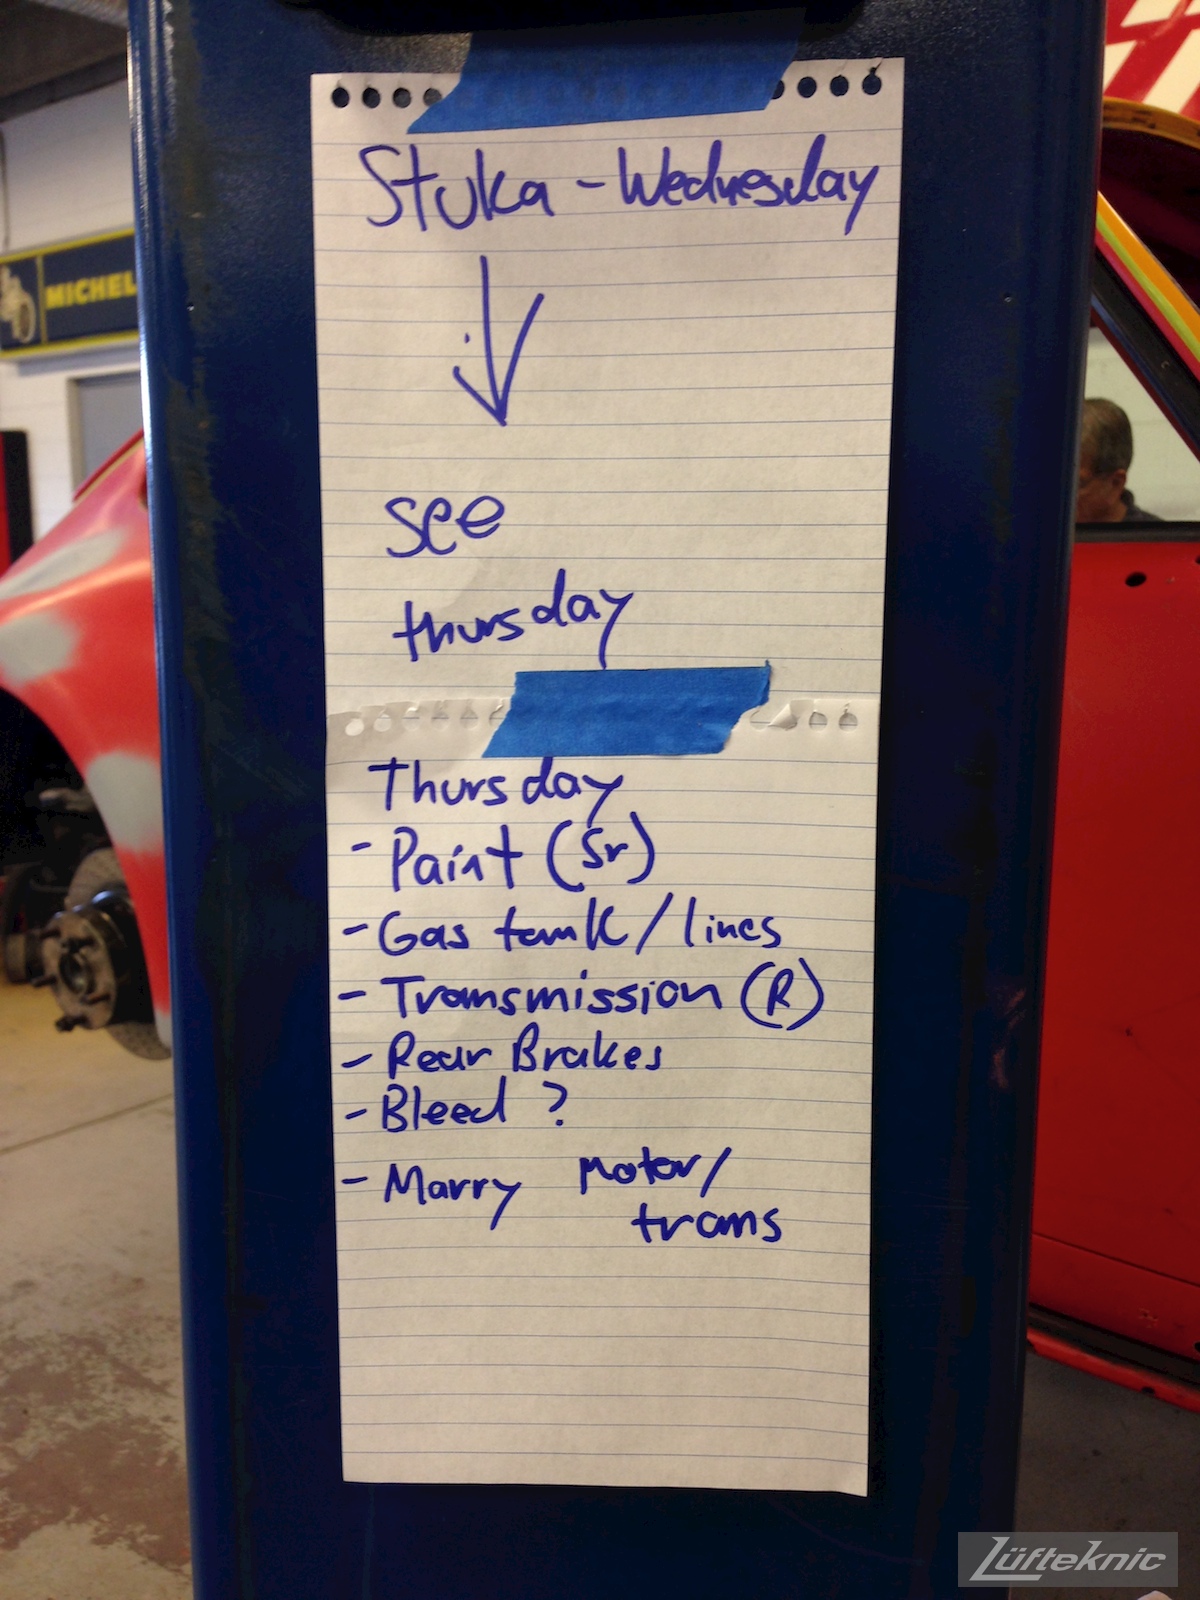 MICHEL
Stuka - Wednesday
see
thursday
Thursday
- Paint (Sr)
- Gas tank / lines
- Transmission (R)
- Rear Brakes
- Bleed ?
- Marry Motor/
trans
Lüfteknic